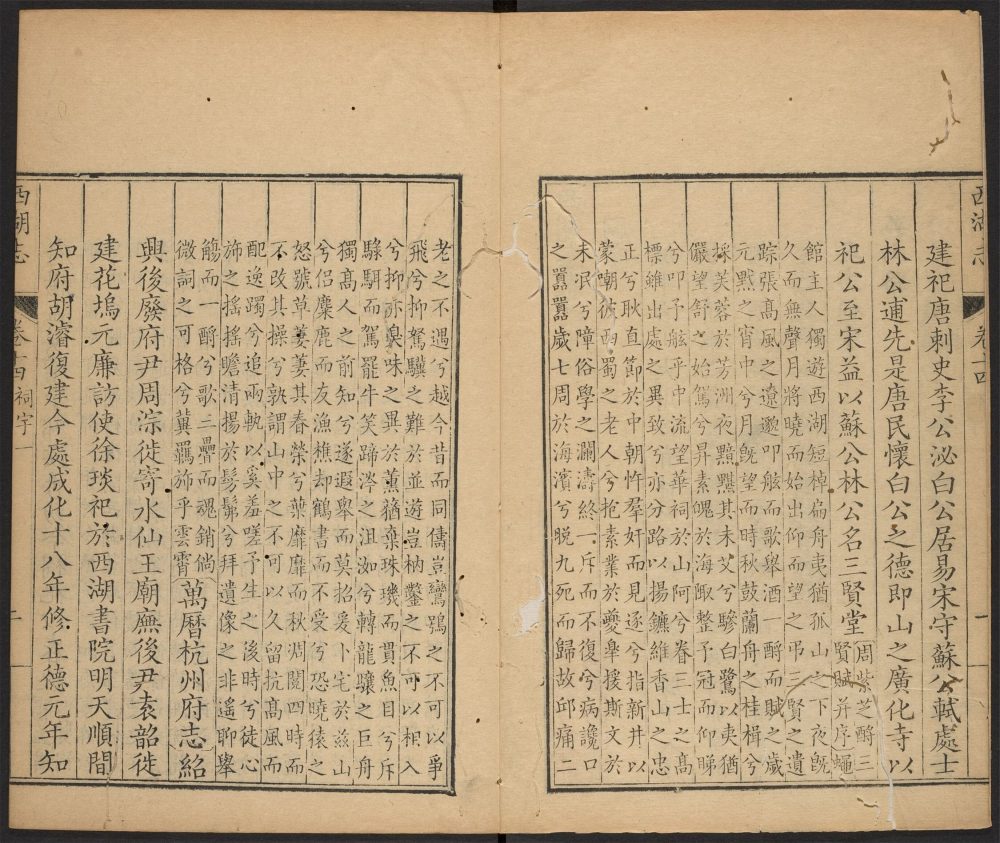 西湖志 卷十四 一
建祀唐刺史李公泌白公居易宋守蘇公軾處士
林公逋先是唐民懷白公之德即山之廣化寺以
祀公至宋益以蘇公林公名三賢堂
周紫芝酹三
賢賦并序蠅
館主人獨遊西湖短棹扁舟夷猶孤山之下夜既
久而無聲月將曉而始出仰而望之弔三賢之遺
踪張高風之遼邈叩舷而歌舉酒一酹而賦之歲
元黙之宵中兮月既望而時秋鼓蘭舟之桂楫兮
採芙蓉於芳洲夜黯黮其未艾兮驂白鷺以夷猶
儼望舒之始駕兮昇素魄於海陬整予冠而仰睇
兮叩予舷乎中流望華祠於山阿兮眷三士之高
標雖出處之異致兮亦分路以揚鑣維香山之忠
正兮耿直節於中朝忤羣奸而見逐兮指新井以
蒙嘲彼西蜀之老人兮抱素業於夔舉援斯文於
未泯兮障俗學之瀾濤終一斥而不復兮病讒口
之囂囂歲七周於海濱兮脫九死而歸故邱痛二
老之不遇兮越今昔而同儔豈鸞鴞之不可以爭
飛兮抑駑驥之難於並遊豈枘鑿之不可以相入
兮抑亦臭味之異於薰蕕棄珠璣而貫魚目兮斥
騄駬而駕罷牛笑蹄涔之沮洳兮轉龍驤之巨舟
獨高人之前知兮遂遐舉而莫招爰卜宅於兹山
兮侣麋鹿而友漁樵却鶴書而不受兮恐曉猿之
怒號草萋萋其春榮兮葉靡靡而秋凋閲四時而
不改其操兮孰謂山中之不可以久留抗高風而
配逸躅兮追兩軌以奚羞嗟予生之後時兮徒心
斾之搖搖瞻清揚於髣髴兮拜遺像之非遥聊舉
觴而一酹兮歌三疊而魂銷倘
微詞之可格兮冀羈斾乎雲霄
萬曆杭州府志紹
興後廢府尹周淙徙寄水仙王廟廡後尹袁韶徙
建花塢元廉訪使徐琰祀於西湖書院明天順間
知府胡濬復建今處成化十八年修正德元年知
西湖志 卷十四 祠宇一 二